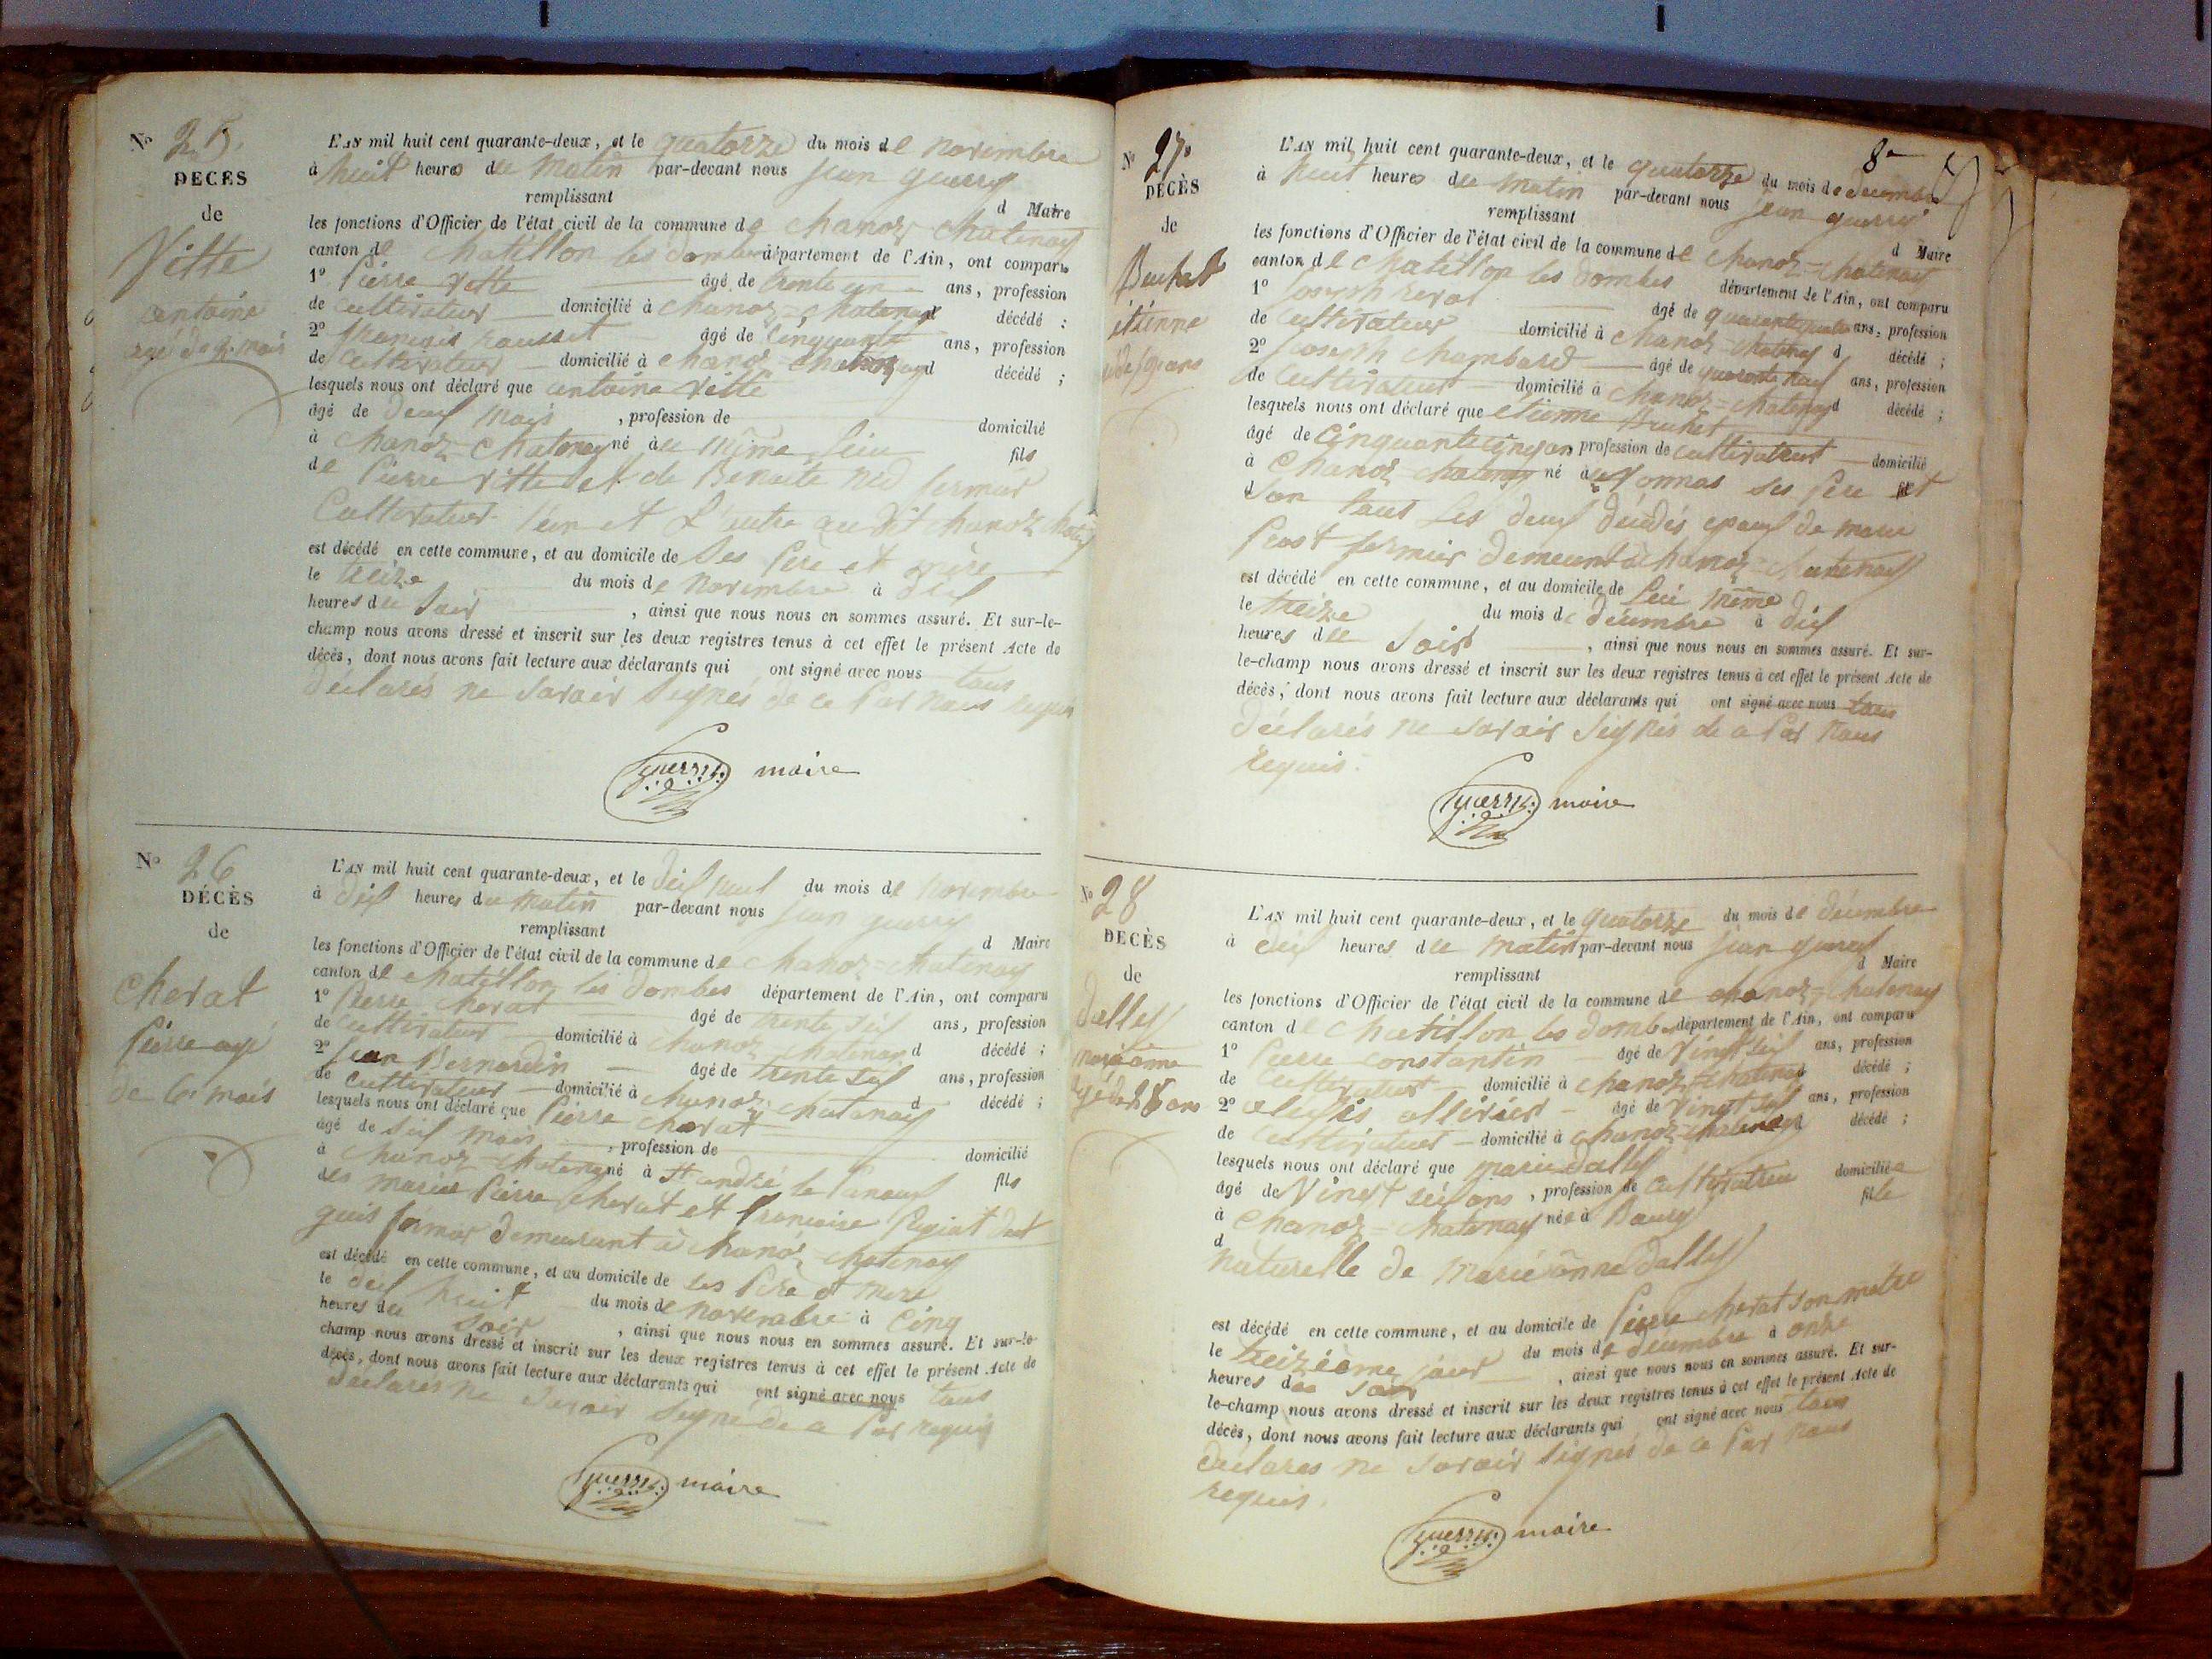 N° 25.
DECES
de
Vitte
antoine
agé de 2 mois
L'AN mil huit cent quarante-deux, et le quatorze du mois de novembre
à huit heures du matin par-devant nous jean guerry
remplissant d Maire
les fonctions d'Officier de l'état civil de la commune de chanoz chatenay
canton de chatillon les dombes département de l'Ain, ont comparu
1° Pierre vitte âgé de trente un ans, profession
de cultivateur domicilié à chanoz=chatenay d décédé ;
2° françois rousset âgé de cinquante ans, profession
de cultivateur domicilié à chanoz chatenay d décédé ;
lesquels nous ont déclaré que antoine vitte
âgé de deux mois , profession de domicilié
à chanoz chatenay né à le même lieu fils
de Pierre vitte et de Benoite
Cultivateur l'un et L'autre au dit chanoz
est décédé en cette commune, et au domicile de ses père et mère
le treize du mois de novembre à dix
heures du soir , ainsi que nous nous en sommes assuré. Et sur-le-
champ nous avons dressé et inscrit sur les deux registres tenus à cet effet le présent Acte de
décès, dont nous avons fait lecture aux déclarants qui ont signé avec nous tous
déclarés ne savoir signer de ce Par nous requis
guerry maire
N° 26
DÉCÈS
de
cherat
Pierre agé
de 6 mois
L'AN mil huit cent quarante-deux, et le dix neuf du mois de novembre
à dix heures du matin par-devant nous jean guerry
remplissant d Maire
les fonctions d'Officier de l'état civil de la commune de chanoz=chatenay
canton de chatillon les dombes département de l'Ain, ont comparu
1° Pierre cherat âgé de trente six ans, profession
de cultivateur domicilié à chanoz chatenay d décédé ;
2° jean Bernardin âgé de trente six ans, profession
de cultivateur domicilié à chanoz chatenay d décédé ;
lesquels nous ont déclaré que Pierre cherat
âgé de six mois , profession de domicilié
à chanoz=chatenay né à St andré le Panoux fils
des mariés Pierre cherat et françoise
fermier demeurant à chanoz chatenay
est décédé en cette commune, et au domicile de ses Père et mère
le dix huit du mois de novembre à cinq
heures du soir , ainsi que nous nous en sommes assuré. Et sur-le-
champ nous avons dressé et inscrit sur les deux registres tenus à cet effet le présent Acte de
décès, dont nous avons fait lecture aux déclarants qui ont signé avec nous tous
déclarés ne savoir signé de ce Par requis
guerry maire
8e
N° 27.
DÉCÈS
de
Buchet
étienne
L'AN mil huit cent quarante-deux, et le quatorze du mois de décembre
à huit heures du matin par-devant nous jean guerry
remplissant d Maire
les fonctions d'Officier de l'état civil de la commune de chanoz=chatenay
canton de chatillon les dombes département de l'Ain, ont comparu
1° joseph âgé de quarante ans, profession
de cultivateur domicilié à chanoz=chatenay d décédé ;
2° joseph chambard âgé de quarante neuf ans, profession
de cultivateur domicilié à chanoz=chatenay d décédé ;
lesquels nous ont déclaré que etienne Buchet
âgé de cinquante cinq an profession de cultivateur domicilié
à chanoz=chatenay né à vonnas ses Père et
tous Les deux décédés epoux de marie
Prost fermier demeurant à chanoz=chatenay
est décédé en cette commune, et au domicile de Lui même
le treize du mois de décembre à dix
heures du soir , ainsi que nous nous en sommes assuré. Et sur-
le-champ nous avons dressé et inscrit sur les deux registres tenus à cet effet le présent Acte de
décès, dont nous avons fait lecture aux déclarants qui ont signé avec nous tous
déclarés ne savoir signés de ce Par nous
requis.
guerry maire
N° 28
DECÈS
de
dallex
marie anne
agé de 28 ans
L'AN mil huit cent quarante-deux, et le quatorze du mois de décembre
à dix heures du matin par-devant nous jean guerry
remplissant d Maire
les fonctions d'Officier de l'état civil de la commune de chanoz=chatenay
canton de chatillon les dombes département de l'Ain, ont comparu
1° Pierre constantin âgé de vingt six ans, profession
de cultivateur domicilié à chanoz=chatenay décédé ;
2° alexis ollivier âgé de vingt six ans, profession
de cultivateur domicilié à chanoz=chatenay décédé ;
lesquels nous ont déclaré que marie dallex
âgé de vingt six ans , profession de cultivatrice domiciliée
à chanoz=chatenay née à Bourg fille
d naturelle de marie anne dallex
est décédé en cette commune, et au domicile de Pierre cherat son maitre
le treizième jour du mois de décembre à onze
heures du soir , ainsi que nous nous en sommes assuré. Et sur-
le-champ nous avons dressé et inscrit sur les deux registres tenus à cet effet le présent Acte de
décès, dont nous avons fait lecture aux déclarants qui ont signé avec nous tous
déclarés ne savoir signés de ce Par nous
requis.
guerry maire